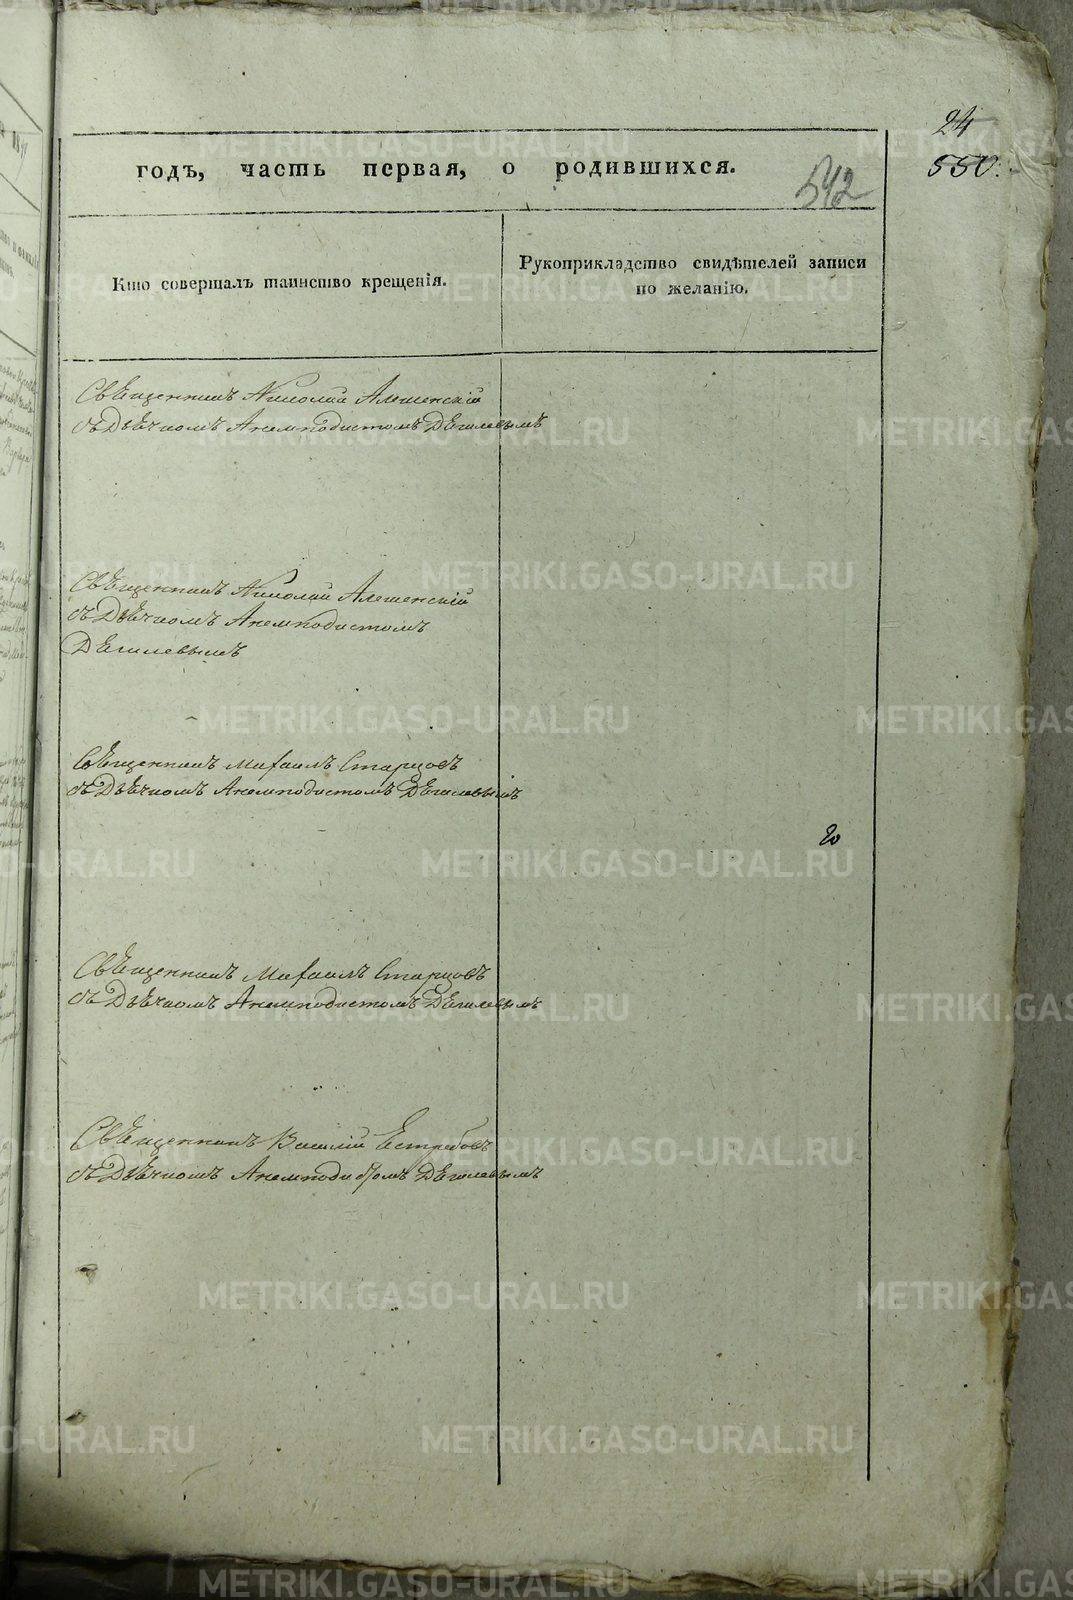 24
550.
годъ, часть первая, о родившихся.
542
Кто совершалъ таинство крещенія.
Рукоприкладство свидѣтелей записи
по желанію.
Священникъ Николай Алешенскій
съ Дьячкомъ Анемподистомъ Дягилевымъ
Священникъ Николай Алешенскій
съ Дьячкомъ Анемподистомъ
Дягилевымъ
Священникъ Михаилъ Старцовъ
съ Дьячкомъ Анемподистомъ Дягилевымъ
Священникъ Михаилъ Старцовъ
съ Дьячкомъ Анемподистомъ Дягилевымъ
Священникъ Василій Ястребовъ
съ Дьячкомъ Анемподистомъ Дягилевымъ
METRIKI.GASO-URAL.RU